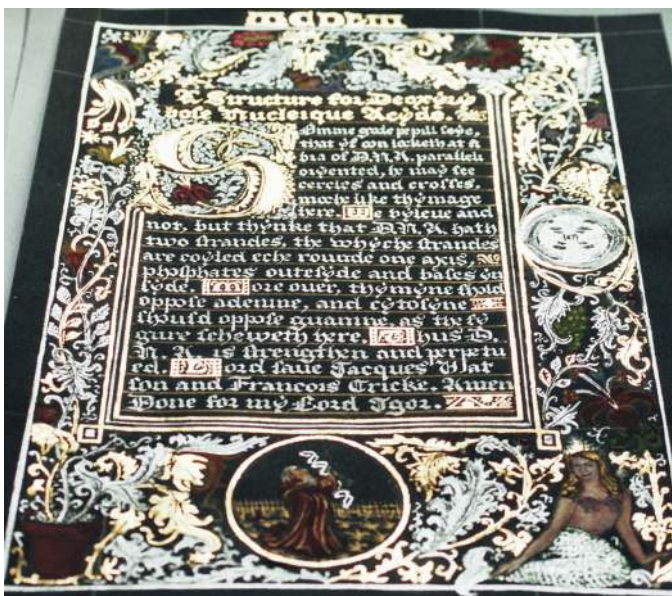 MCDLIII
A Structure for Deoxyry
bose Nucleique Acyde.
Somme gode pepill seye,
that yf oon loketh at a
bia of D.N.A. parallely
onvented, he may see
cercles and crosses,
moche like thymage
here. We byleue and
not, but thynke that D.N.A. hath
two strandes, the whyche strandes
are coyled eche rounde one axis,
phosphates outesyde and bases yn
syde. More ouer, thymyne shold
oppose adenine, and cytosyne
should oppose guanine as the fy
gure scheweth here. Thus D.
N.A. is strengthen and perpetu
ed. Lord saue Jacques Wat
son and Francois Cricke. Amen
Done for my Lord Igor.